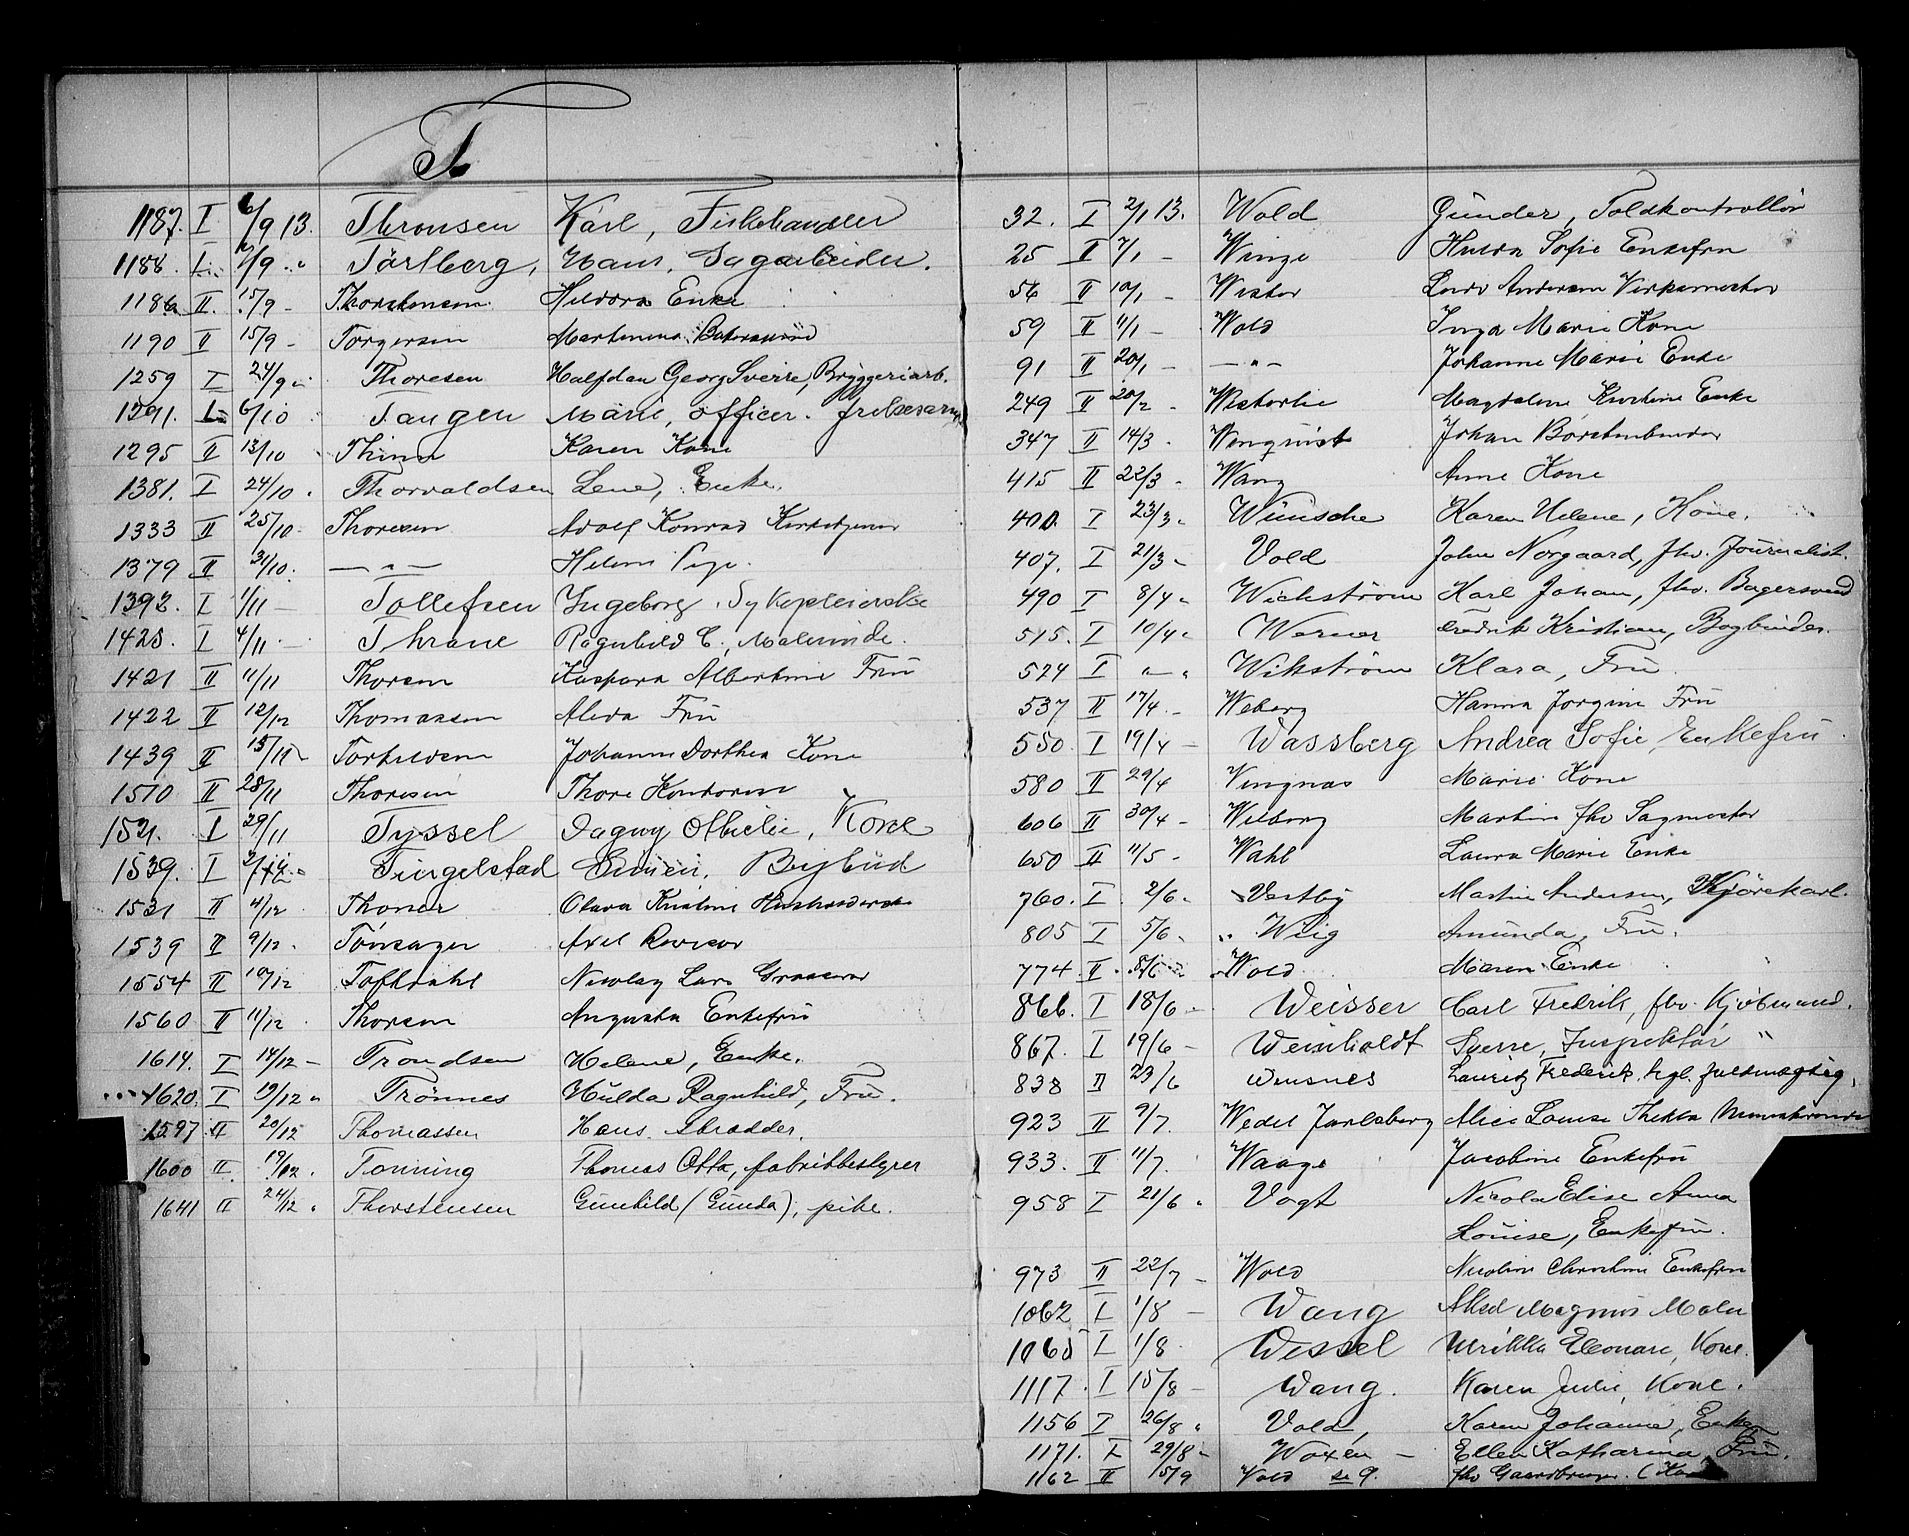 T
1187. I 6/9 13. Thronsen Karl, Fiskehandler
1188. I 7/9 Tärlberg, Hans, Sagarbeider.
1186 II 15/9 - Thorstensen Heldora Enke
1190 II 15/9 - Torgersen
1259 I 24/9 Thoresen Halfdan Georg Sverre, Bryggeriarb.
1291. I 6/10 Tangen Marie, officer. frelsesarm
1295 II 13/10 Karen Kone
1381. I 24/10 Thorvaldsen Lene, Enke.
1333 II 25/10 Thoresen Adolf Konrad Kirketjener
1379 II 31/10. — " — Helene Pige.
1392. I 1/11 — Tollefsen Ingeborg, Sykepleierske
1428. I 4/11. — Thrane Ragnhild C., Malerinde.
1421 II 11/11 Thoresen Kaspara Albertine Fru
1422 II 12/12 Thomassen Alida Fru
1439 II 15/11 - Torkildsen Johanne Dorthea Kone
1510 II 28/11 Thoresen Thore Kontorist
1521. I 29/11 Tyssel Dagny Othilie, Kone
1539. I 2/12 Tingelstad Bybud
1531 II 4/12 Thoner Olava Kristine
1539 II 9/12. Tønsager Axel Revisor
1554 II 10/12 Toftdahl Nicolay Lars Grosserer
1560 II 11/12 Thoresen Augusta Enkefru
1614. I 14/12 - Trondsen Helene, Enke.
1620 I 19/12 Trønnes Hulda Ragnhild, Fru.
1597 II 20/12 Thomassen Hans. skrædder.
1600 II 19/12. Tonning Thomas Otto, fabrikbestyrer
1641 II 24/12 Thorstensen Gunhild (Gunda), pike.
32. I 2/1 13. Wold Gunder, Toldkontrollør
25 II 7/1 - Winge Hulda Sofie Enkefru
56 II 10/1 - Wister Andersen Verksmester
59 II 11/1 - Wold Inga Marie Kone
91 II 20/1 - — " — Johanne Marie Enke
249 II 20/2 - Westerlie Magdalene Kirstine Enke
347 II 14/3. Wenquist Johan Børstenbinder
415 II 22/3 - Wang Anne Kone
400. I 23/3 Wünsche Karen Helene, Kone.
407. I 21/3 - Vold John Norgaard, fhv. Journalist.
490 I 8/4 Wickstrøm Karl Johan, fhv. Bagersvend
515. I 10/4 Werner Fredrik Kristian, Bogbinder.
524 I " " Wikstrøm Klara, Fru.
537 II 17/4 - Weberg Hanna Jorgine Fru
550. I 19/4 — Wassberg Andrea Sofie, Enkefru.
580 II 29/4 Vingnæs Marie Kone
606 II 30/4 - Weberg Martin fhv Sagmester
650 II 11/5 - Wahl Laura Marie Enke
760. I 2/6 Vestby Martin Andersen, Kjørekarl.
805 I 5/6 Wiig Amunda, Fru.
774. II 8/6 Wold Maren Enke
866. I 18/6 Weisser Carl Fredrik, fhv. Kjøbmand.
867. I 19/6 — Weinholdt Sverre, Inspektør "
838 II 23/6 Winsnes Lauritz Frederik. kgl. fuldmægtig,
923 II 9/7. Wedel Jarlsberg Alice Louise Thekla
933. II 11/7. Waage Jacobine Enkefru
958 I 21/6 Vogt Nicola Elise Anna
Louise, Enkefru.
973 II 22/7 - Wold Nicoline Christine Enkefru
1062 I 1/8 — Wang Aksel Magnus Maler
1065 I 1/8. Wessel Ulrikka Eleonore, Kone.
1117. I 15/8 - Wang. Karen Julie, Kone.
1156 I 26/8 Vold, Karen Johanne, Enke
1171. I 29/8 - Waxén — Ellen Katharina, Fru.
1162 II 5/9 Wold se 9. fhv Gaardbruger.